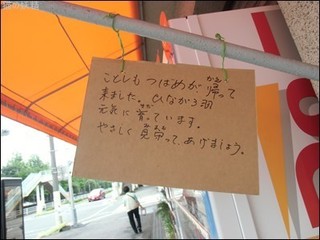 ことしも つばめが 帰って
来ました。ひなが3羽
元気に 育って います。
やさしく 見守って、あげましょう。